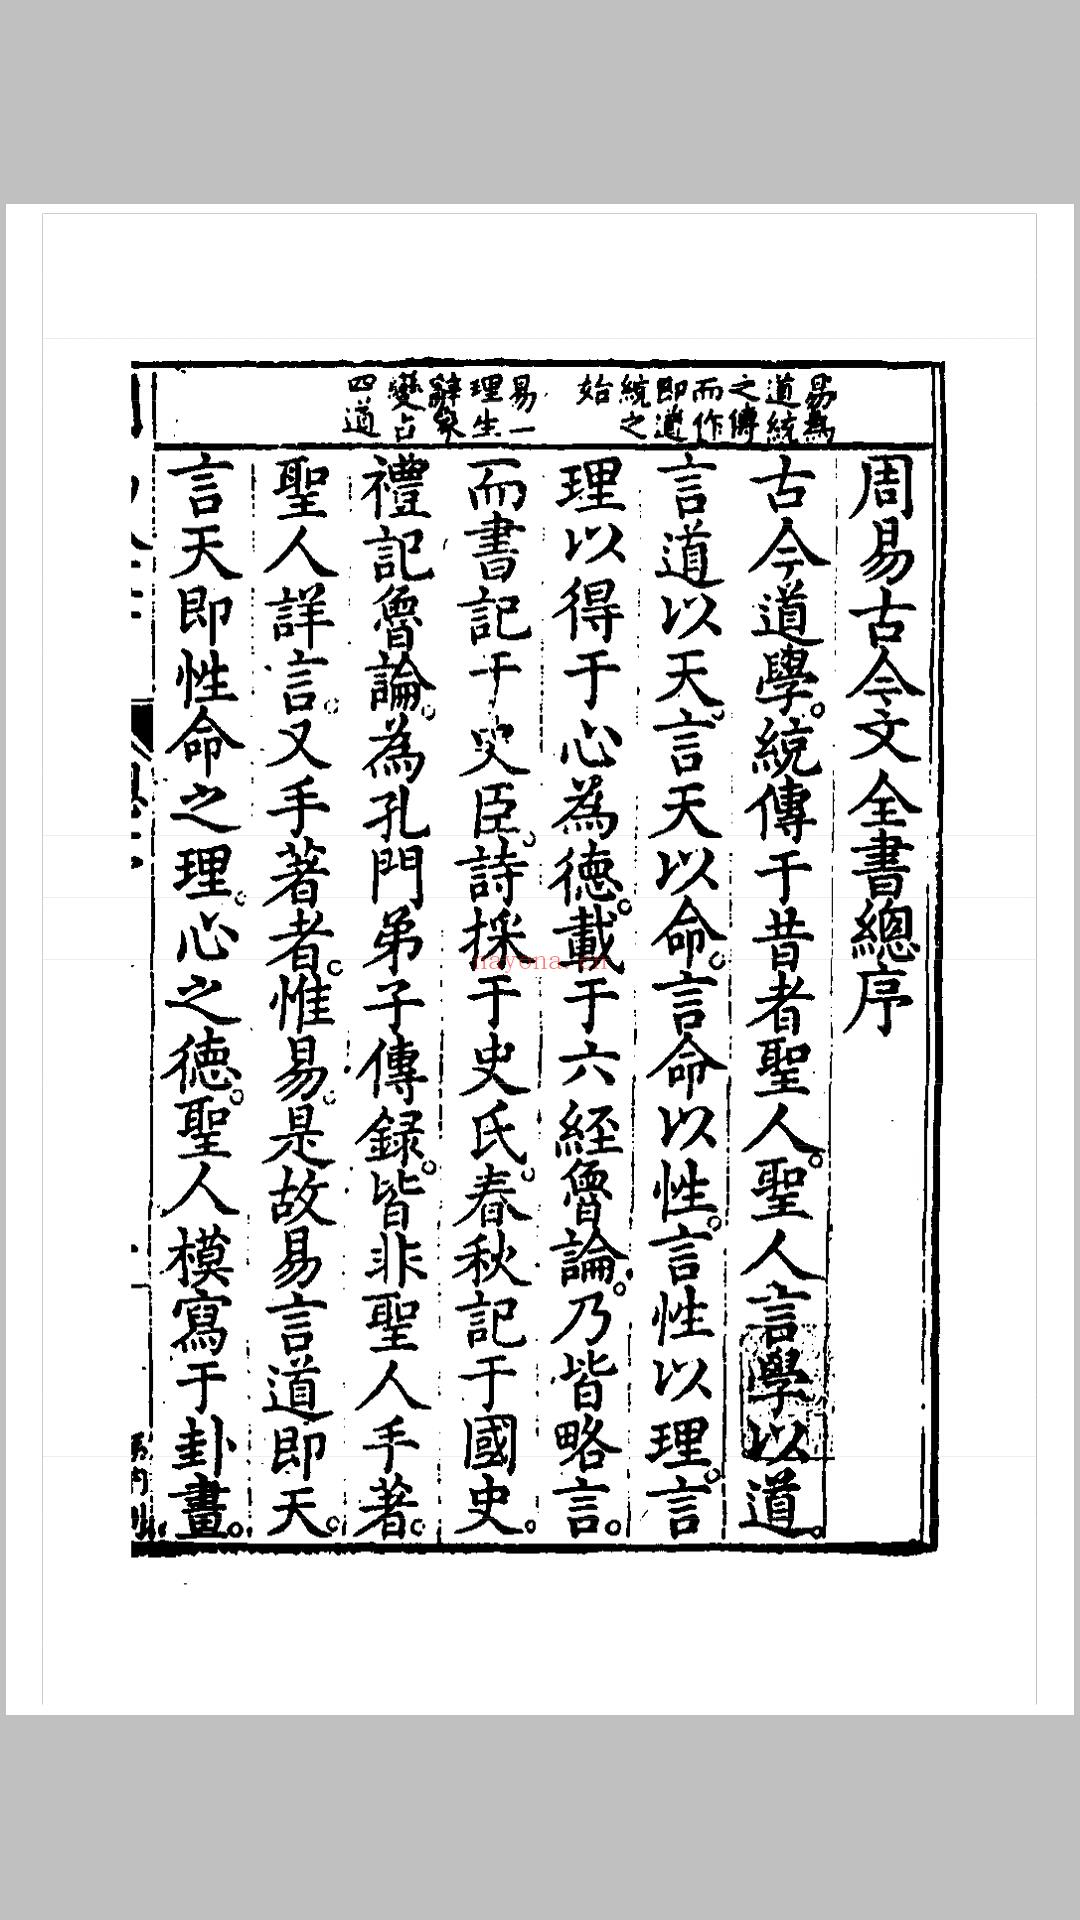 易爲
道統
之傳
而作
即道
統之
始
易一
理生
辭象
變占
四道
周易古今文全書總序
古今道學。統傳于昔者聖人。聖人言學以道。
言道以天。言天以命。言命以性。言性以理。言
理以得于心為德。載于六經魯論。乃皆略言。
而書記于史臣。詩採于史氏。春秋記于國史。
禮記魯論。為孔門弟子傳録。皆非聖人手著。
聖人詳言。又手著者。惟易。是故易言道即天。
言天即性命之理。心之德。聖人模寫于卦畫。
nayona.cn